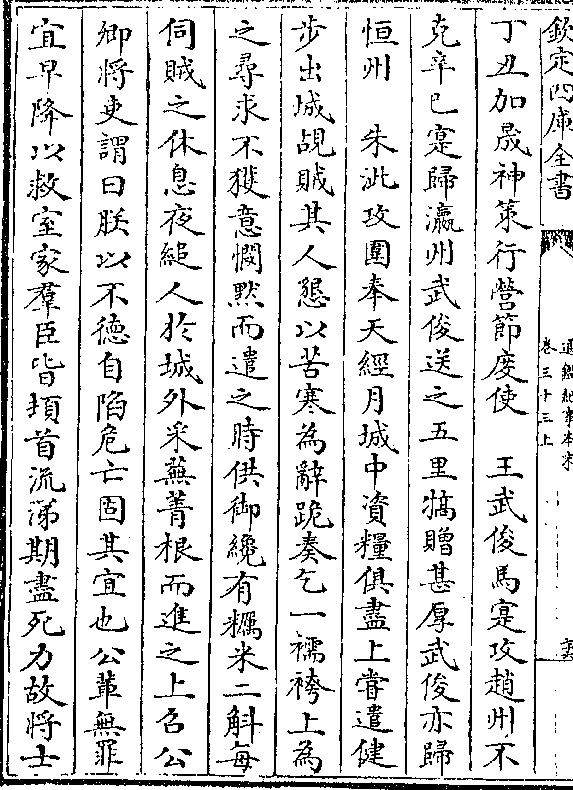 欽定四庫全書
通鑑紀事本末
卷三十三上
丁丑加晟神策行營節度使　王武俊馬寔攻趙州不
克辛巳寔歸瀛州武俊送之五里犒贈甚厚武俊亦歸
恒州　朱泚攻圍奉天經月城中資糧俱盡上嘗遣健
步出城覘賊其人懇以苦寒為辭跪奏乞一襦袴上為
之尋求不獲意憫黙而遣之時供御纔有糲米二斛每
伺賊之休息夜縋人於城外采蕪菁根而進之上召公
卿將吏謂曰朕以不德自陷危亡固其宜也公輩無罪
宜早降以救室家羣臣皆頓首流涕期盡死力故將士